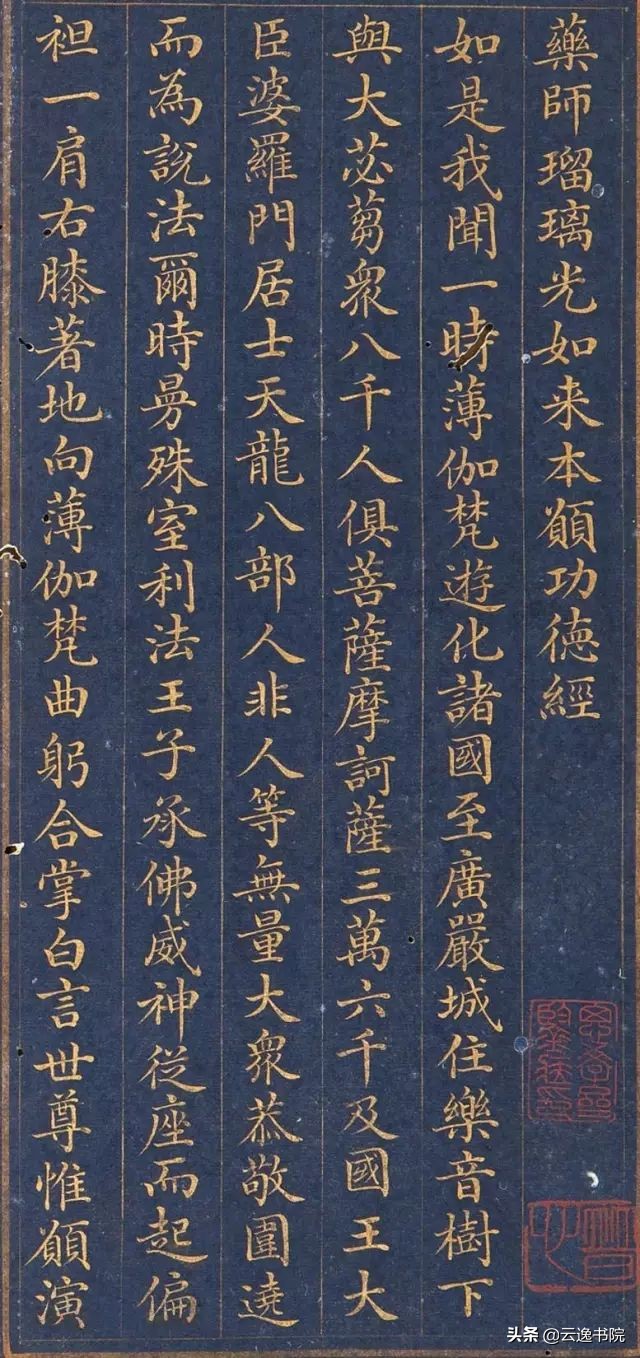 藥師瑠璃光如来本願功徳經
如是我聞一時薄伽梵遊化諸國至廣嚴城住樂音樹下
與大苾蒭衆八千人俱菩薩摩訶薩三萬六千及國王大
臣婆羅門居士天龍八部人非人等無量大衆恭敬圍遶
而為說法爾時曼殊室利法王子承佛威神従座而起偏
袒一肩右膝著地向薄伽梵曲躬合掌白言世尊惟願演
头条 @云逸书院